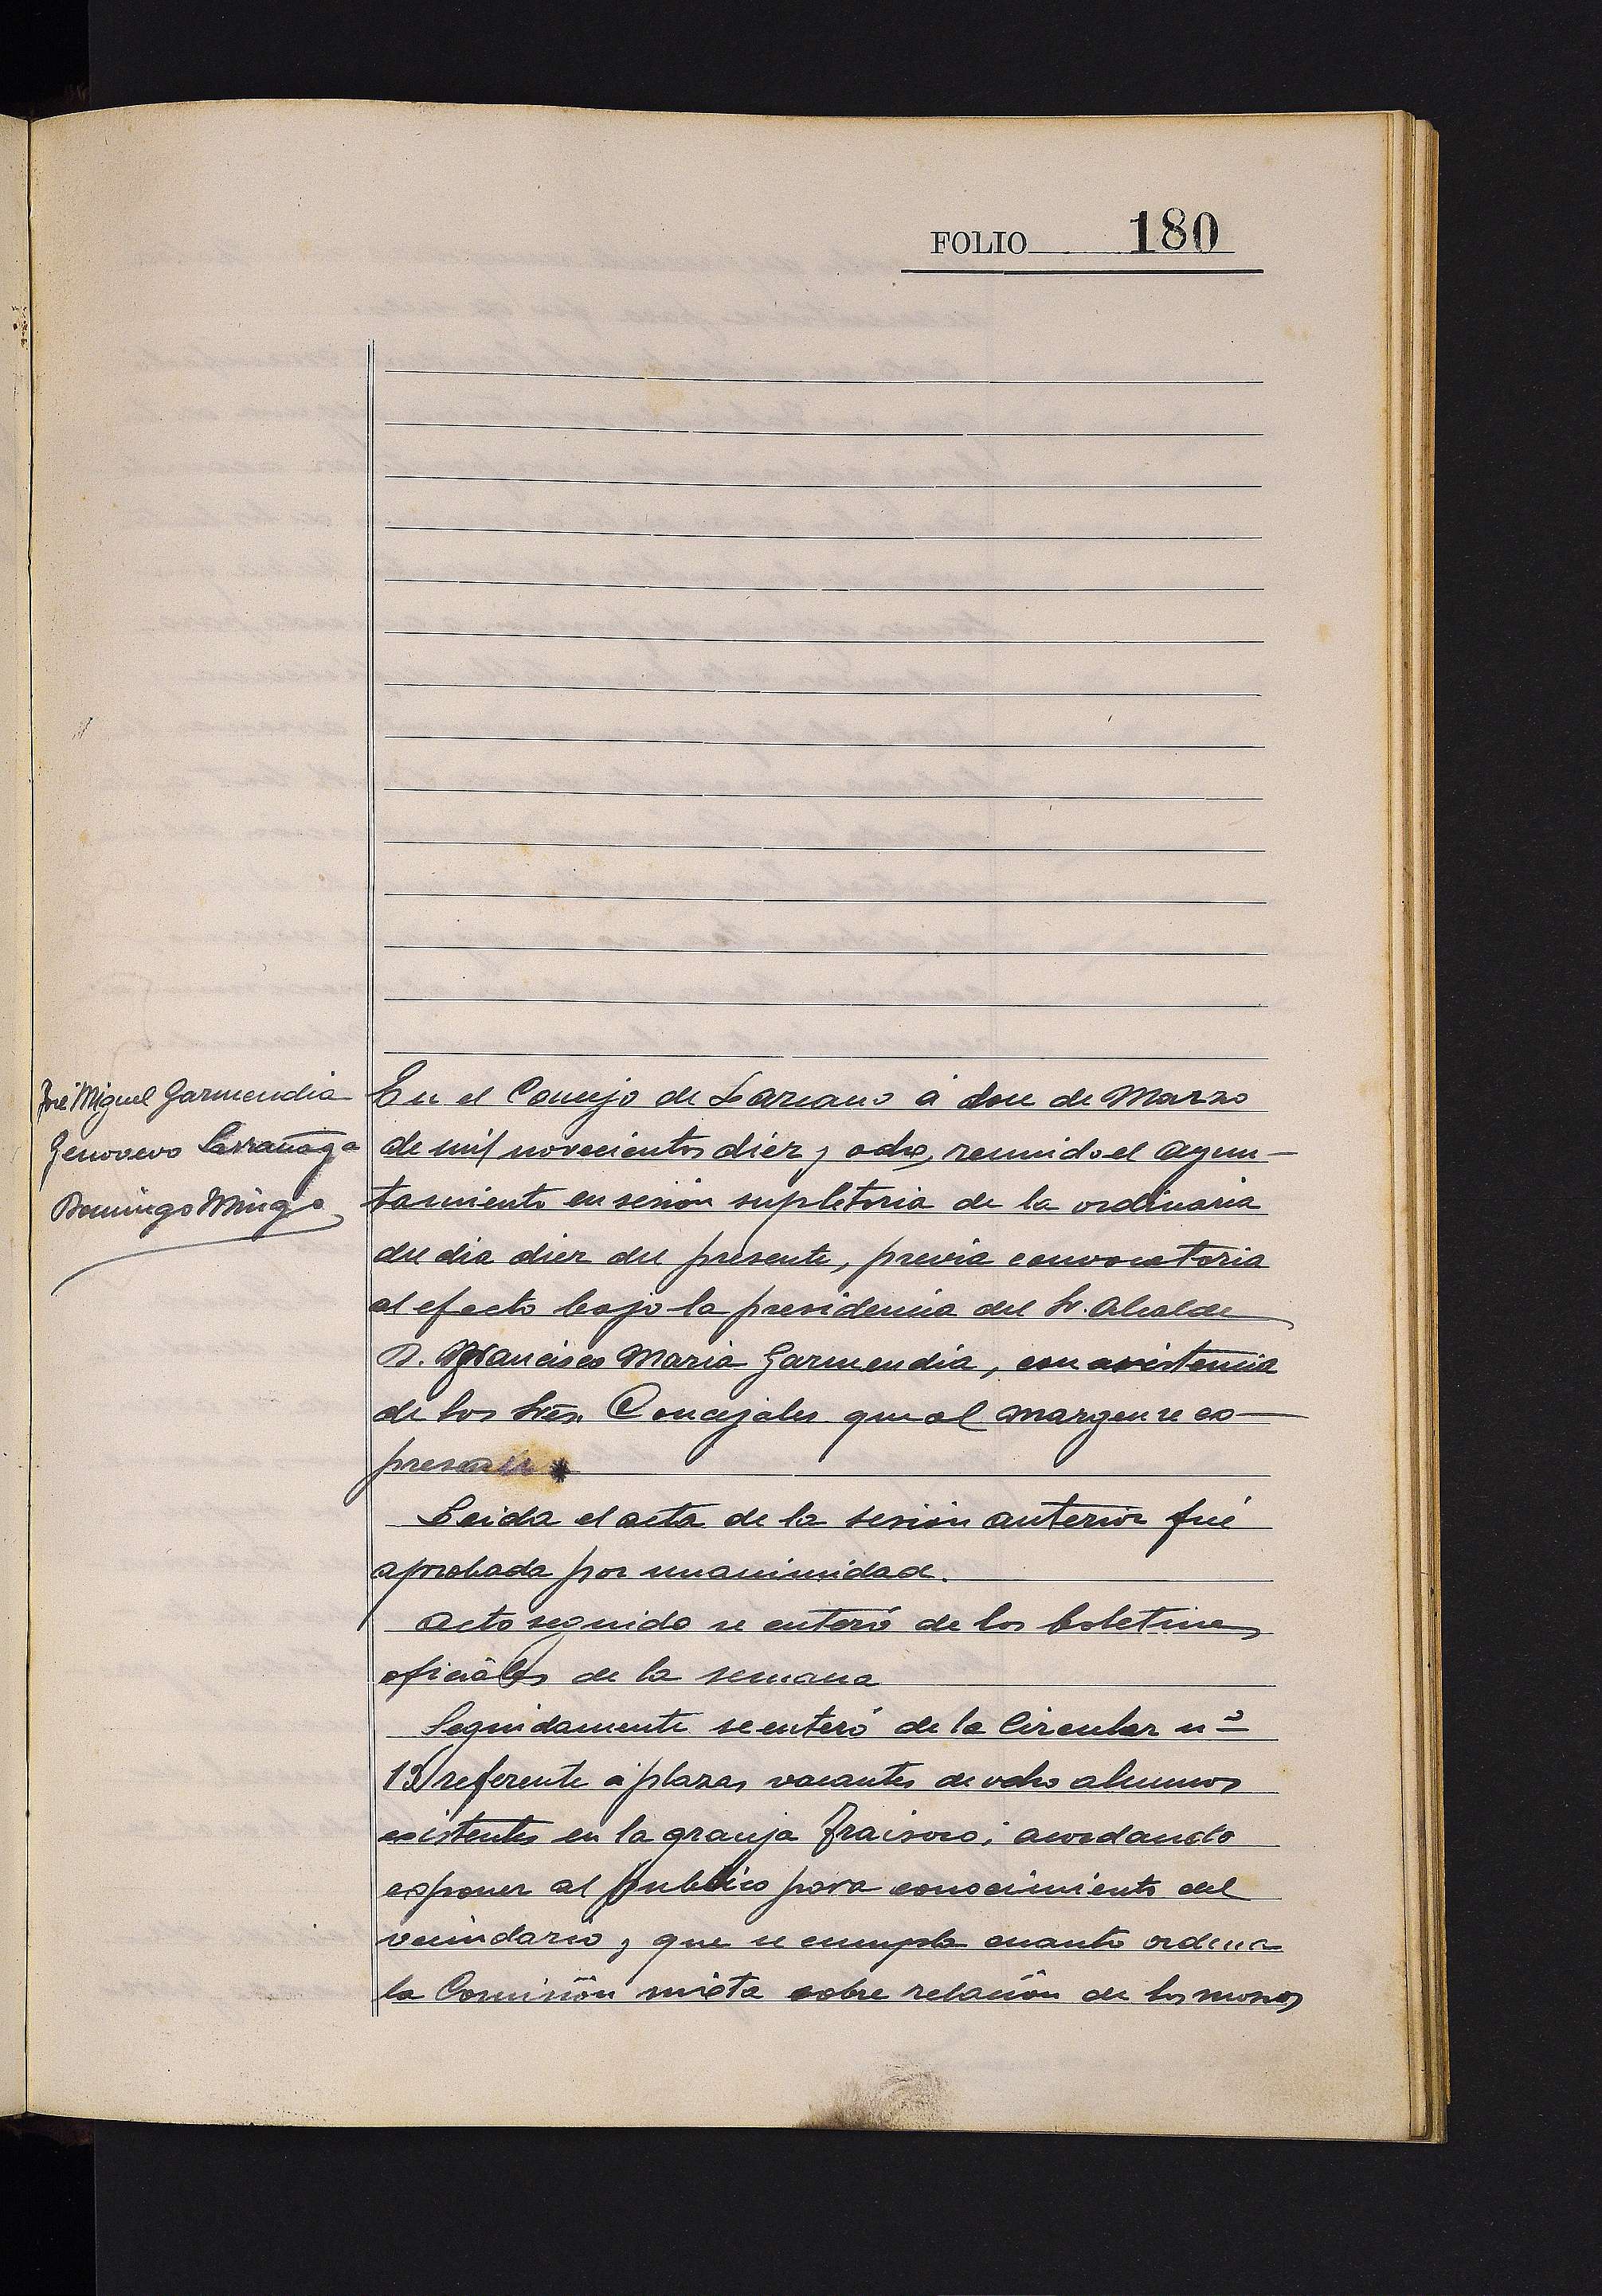 FOLIO 180
José Miguel Garmendia
Genovevo Larrañaga
Domingo Mingo
En el Concejo de Lazcano á doce de Marzo
de mil novecientos diez y ocho, reunido el ayun-
tamiento en sesión supletoria de la ordinaria
del dia diez del presente, previa convocatoria
al efecto bajo la presidencia del Sr. Alcalde
D. Francisco Maria Garmendia, con asistencia
de los Sres. Concejales que al margen se es-
presan
Leida el acta de la sesión anterior fué
aprobada por unanimidad.
Acto seguido se enteró de los boletines
oficiales de la semana
Seguidamente se enteró de la Circular nº
13 referente á plazas vacantes de ocho alumnos
existentes en la granja Fraisoro; acordando
esponer al publico para conocimiento del
vecindario, y que se cumpla cuanto ordena
la Comisión mixta sobre relación de los mozos